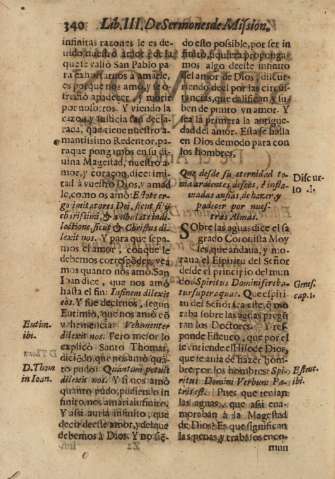 340 Lib. III. De Sermones de Mission.
infinitas razones le es de-
uido, nuestro amor: de la
que te valió San Pablo pa
ra cautiuarnos à amarle,
es porque nos amó, y se es
trañó à padecer, y morir
por nosotros. Y viendo la
razon, y justicia tan decla-
rada, que tiene nuestro a-
mantissimo Redentor, pa-
ra que pongamos en su di-
uina Magestad, nuestro a-
mor, y coraçon, dice: imi-
tad à vuestro Dios, y amad
le, como os amó: Estote er-
go imitatores Dei, sicut fi-
lij charissimi, & ambulate in di-
lectione, sicut & Christus di-
lexit nos. Y para que sepa-
mos el amor, con que le
debemos corresponder, vea
mos quanto nos amó. San
Iuan dice, que nos amó
hasta el fin: In finem dilexit
eos. Y fue decirnos, segun
Eutimio, que nos amó con
vehemencia: Vehementer
dilexit nos. Pero mejor lo
explicó Santo Thomas,
diciédo, que nos amó quá-
to pudo: Quantum potuit
dilexit nos. Y si nos amó
quanto pudo, pudiendo in
finito, nos amaria infinito.
Y assi auria infinito, que
decir de este amor, y de la que
debemos à Dios. Y no siē-
Eutim.
ibi.
D. Thom
in Ioan.
do esto possible, por ser in
finito, siquiera, pongà-
mos algo de este infinito
del amor de Dios, discur-
riendo del por las circuns-
tancias, que califican, y su-
ben de punto vn amor. Y
sea la primera la antigue-
dad del amor. Estase halla
en Dios de modo para con
los hombres.
Que desde su eternidad to-
ma ardientes, deseos, è infla-
madas ansias, de hacer, y
padecer por nues-
tras Almas.
Discur
so .I.
Sobre las aguas dice el sa
grado Coronista Moy
ses, que andaua, y mo-
raua el Espiritu del Señor
desde el principio del mun
do: Spiritus Domini fereba-
tur super aquas. Que espiri-
tu del Señor sea este, ò mo-
raba sobre las aguas pregū
tan los Doctores. Y res-
ponde Esteuco, que por el
se entiende el Hijo de Dios,
que te auia de hazer hom-
bre por los hombres: Spi-
ritus Domini Verbum Pa-
tris est. Pues que tenian
las aguas, que assi ena-
moraban à la Magestad
de Dios? Es que significan
las penas, y trabajos en con-
mun
Genes.
cap. 1.
Esteuc.
ibi.